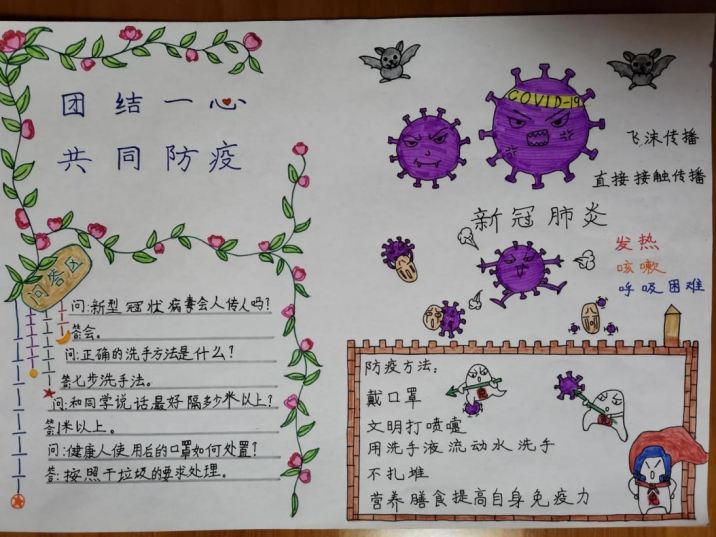 团结一心
共同防疫
问答区
问:新型冠状病毒会人传人吗?
答:会。
问:正确的洗手方法是什么?
答:七步洗手法。
问:和同学说话最好隔多少米以上?
答:1米以上。
问:健康人使用后的口罩如何处置?
答:按照干垃圾的要求处理。
COVID-19
飞沫传播
直接接触传播
新冠肺炎
发热
咳嗽
呼吸困难
防疫方法:
戴口罩
文明打喷嚏
用洗手液流动水洗手
不扎堆
营养膳食提高自身免疫力